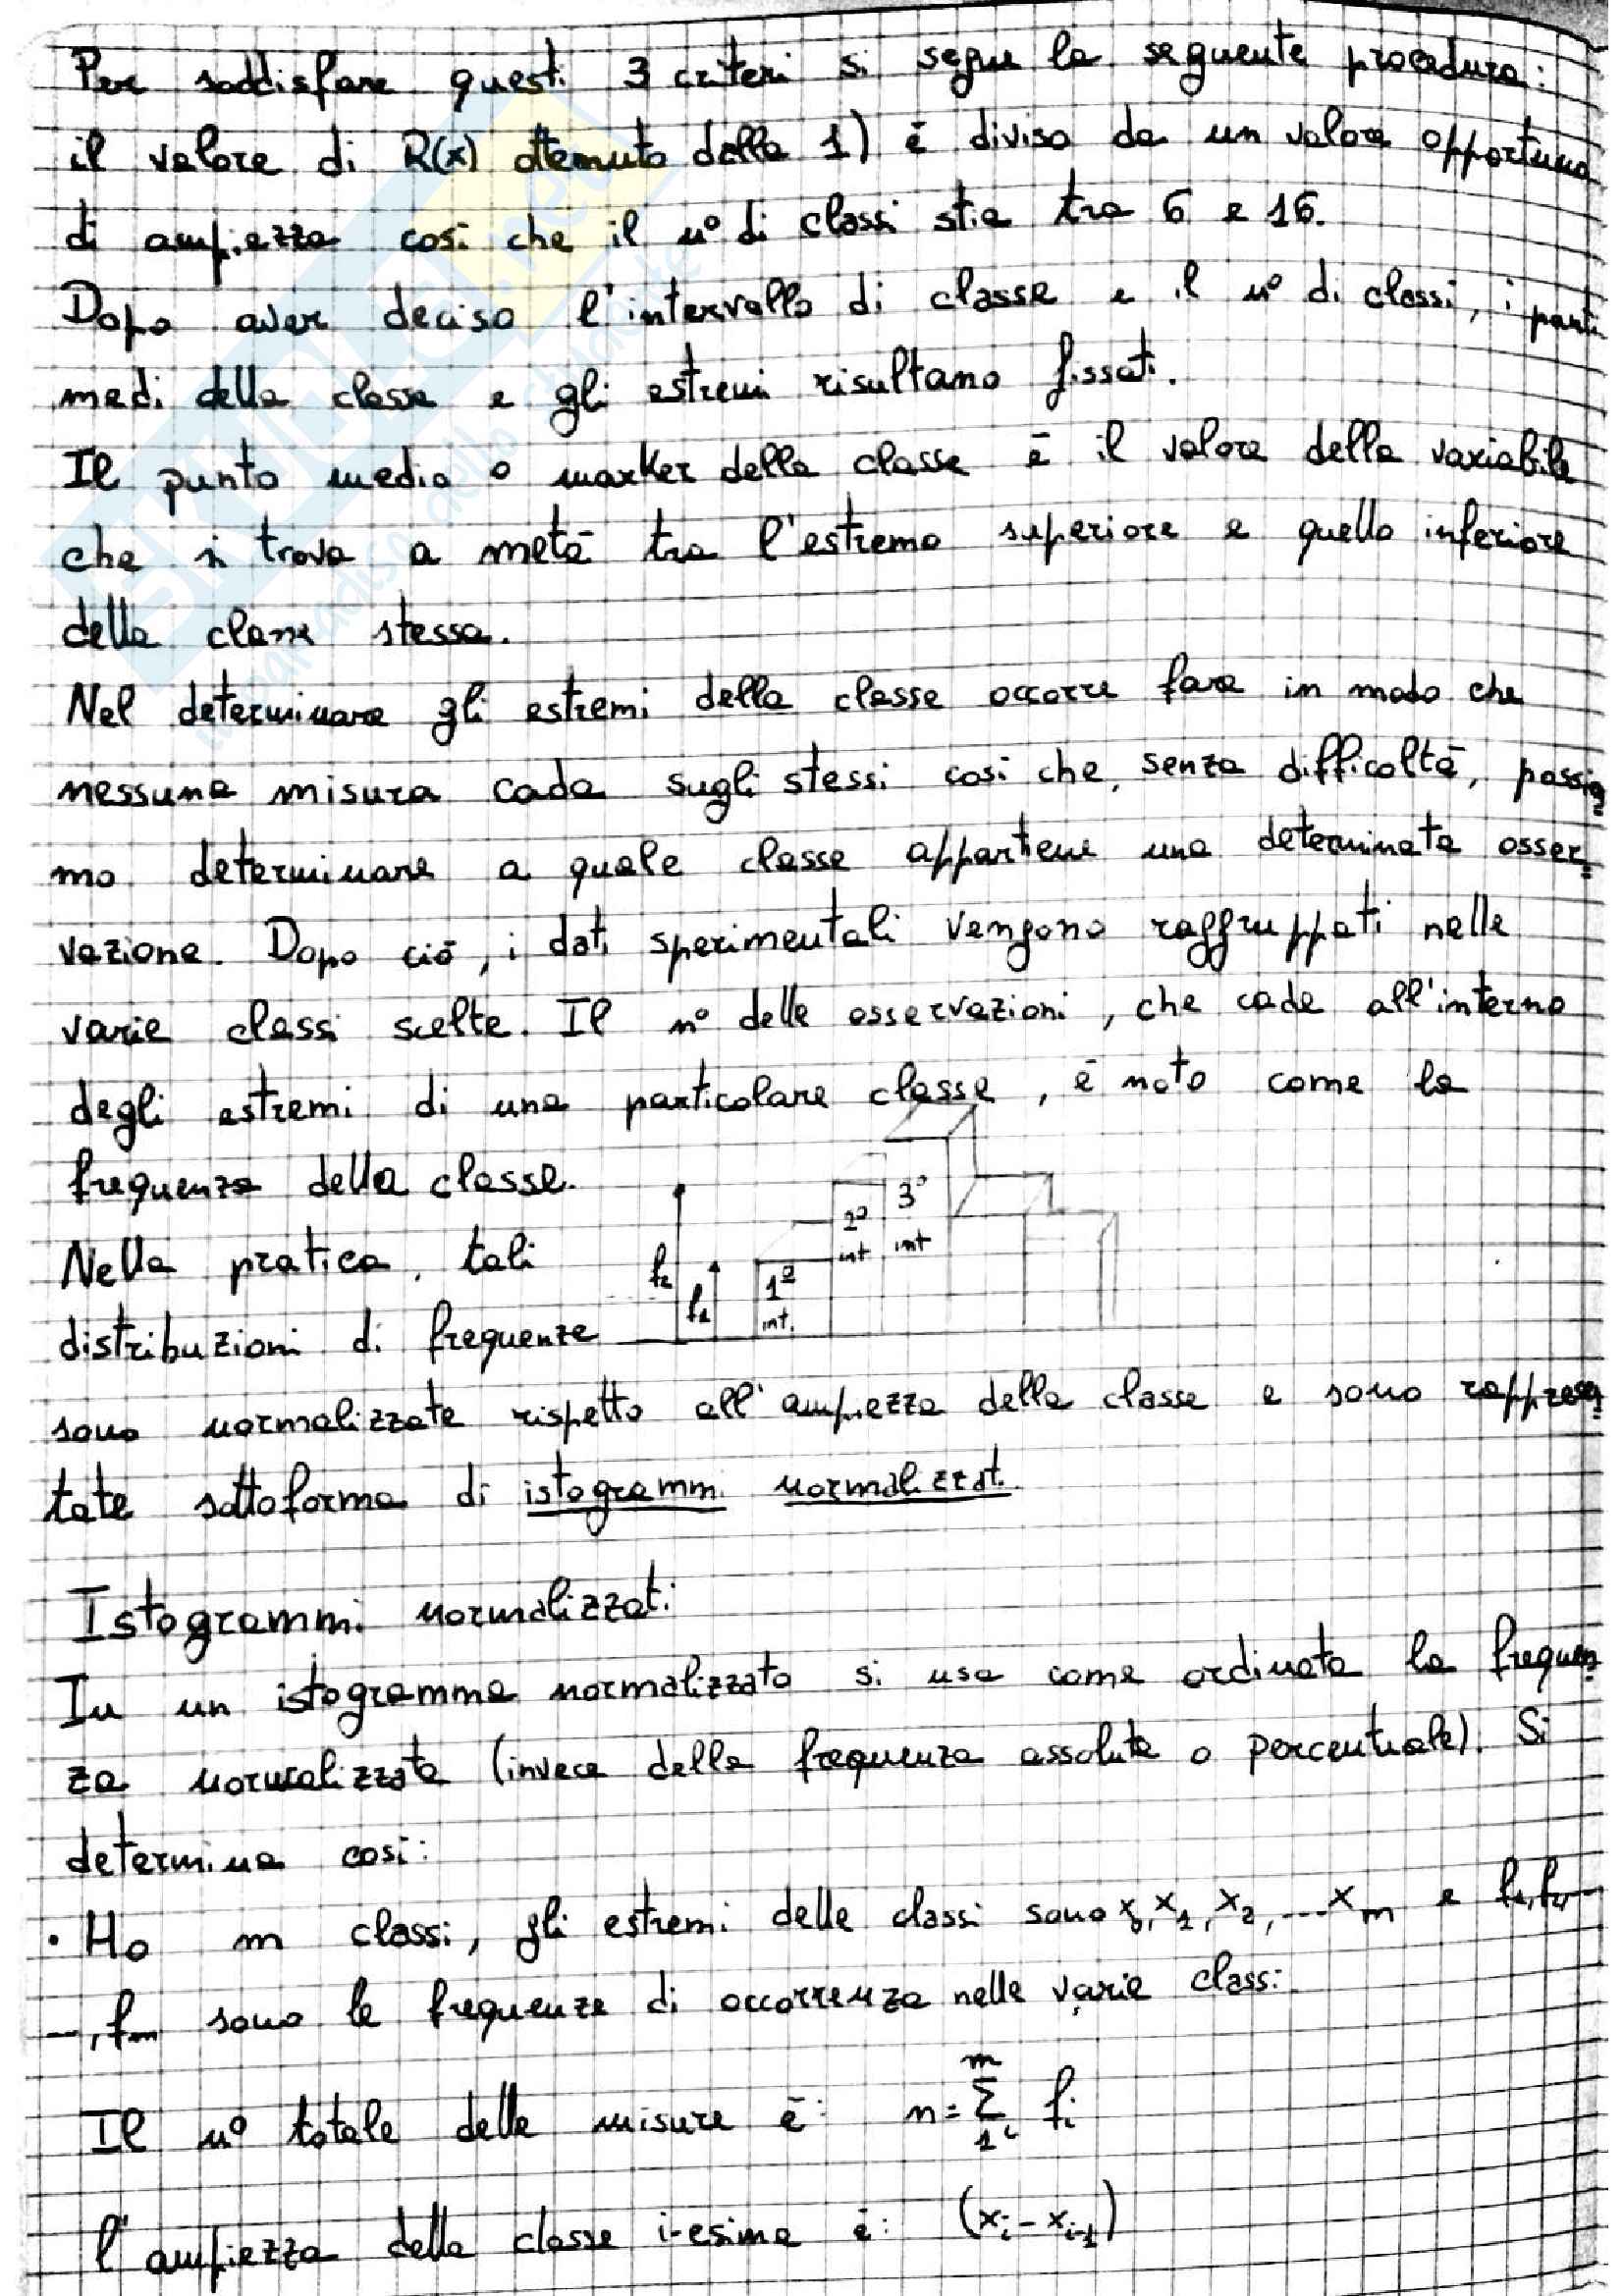 Per soddisfare questi 3 criteri si segue la seguente procedura:
il valore di R(x) ottenuto dalla 1) è diviso da un valore opportuno
di ampiezza così che il n° di classi stia tra 6 e 16.
Dopo aver deciso l'intervallo di classe e il n° di classi, i punti
medi della classe e gli estremi risultano fissati.
Il punto medio o marker della classe è il valore della variabile
che si trova a metà tra l'estremo superiore e quello inferiore
della classe stessa.
Nel determinare gli estremi della classe occorre fare in modo che
nessuna misura cada sugli stessi così che, senza difficoltà, possia=
mo determinare a quale classe appartiene una determinata osser=
vazione. Dopo ciò, i dati sperimentali vengono raggruppati nelle
varie classi scelte. Il n° delle osservazioni, che cade all'interno
degli estremi di una particolare classe, è noto come la
frequenza della classe.
Nella pratica, tali
distribuzioni di frequenze
f2 f1 1° int. 2° int 3° int
sono normalizzate rispetto all'ampiezza della classe e sono rappresen=
tate sottoforma di istogrammi normalizzati.
Istogrammi normalizzati
In un istogramma normalizzato si usa come ordinata la frequen=
za normalizzata (invece della frequenza assoluta o percentuale). Si
determina così:
· Ho m classi, gli estremi delle classi sono x0, x1, x2, ... xm e f1, f2, --
--, fm sono le frequenze di occorrenza nelle varie classi.
Il n° totale delle misure è: n = Σ 1 i m fi
l'ampiezza della classe i-esima è: (xi - xi-1)
SKUOLA.net
il paradiso dello studente